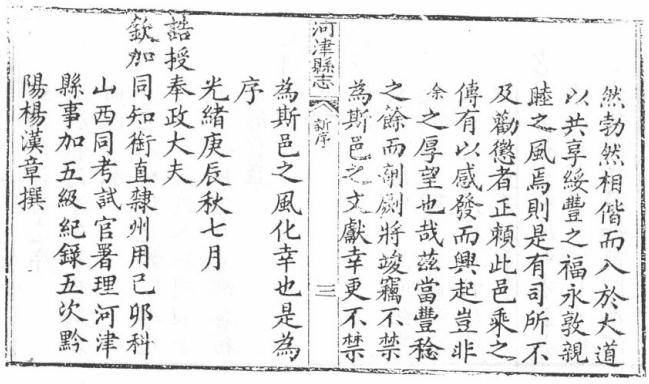 然勃然相偕而入於大道
以共享綏豐之福永敦親
睦之風焉則是有司所不
及勸懲者正賴此邑乘之
傳有以感發而興起豈非
余之厚望也哉茲當豐稔
之餘而剞劂將竣竊不禁
為斯邑之文獻幸更不禁
河津縣志
新序
三
為斯邑之風化幸也是為
序
光緒庚辰秋七月
誥授奉政大夫
欽加同知銜直隸州用己卯科
山西同考試官署理河津
縣事加五級紀錄五次黔
陽楊漢章撰